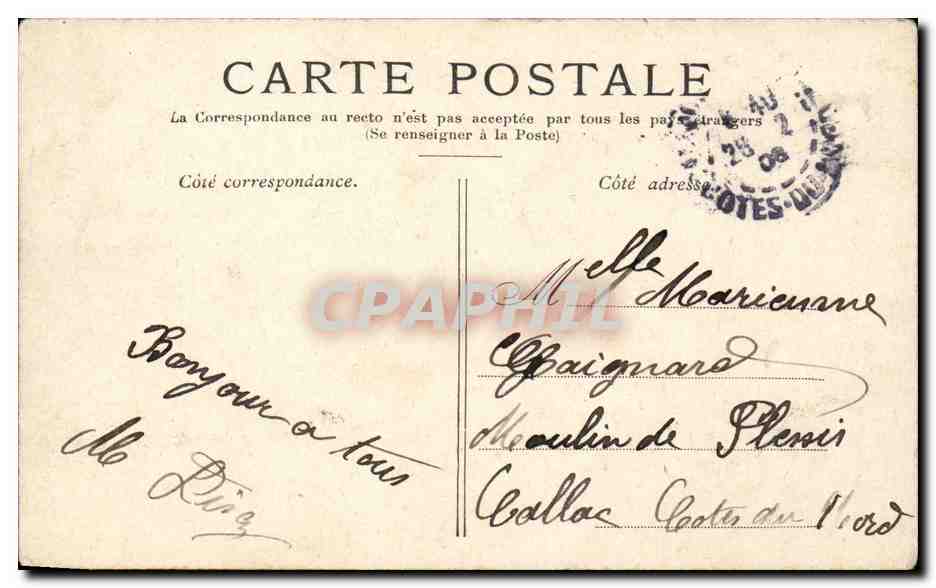 CARTE POSTALE
La Correspondance au recto n'est pas acceptée par tous les pays étrangers
(Se renseigner à la Poste)
Côté correspondance.
Côté adresse
28 2
08
COTES-DU-NORD
CPAPHIL
Bonjour a tous
M
Melle Marieanne
Gaignard
Moulin de Plessis
Callac Cotes du Nord